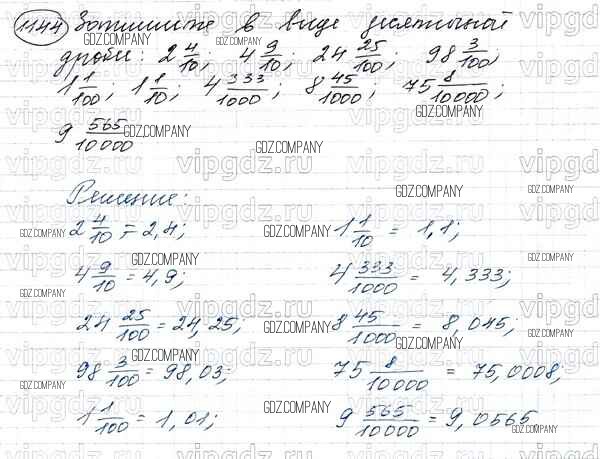 1144 Запишите в виде десятичной
дроби: 2 4/10; 4 9/10; 24 25/100; 98 3/100;
1 1/100; 1 1/10; 4 333/1000; 8 45/1000; 75 8/10000;
9 565/10000
Решение:
2 4/10 = 2,4;
4 9/10 = 4,9;
24 25/100 = 24,25;
98 3/100 = 98,03;
1 1/100 = 1,01;
1 1/10 = 1,1;
4 333/1000 = 4,333;
8 45/1000 = 8,045;
75 8/10000 = 75,0008;
9 565/10000 = 9,0565
GDZ.COMPANY
vipgdz.ru